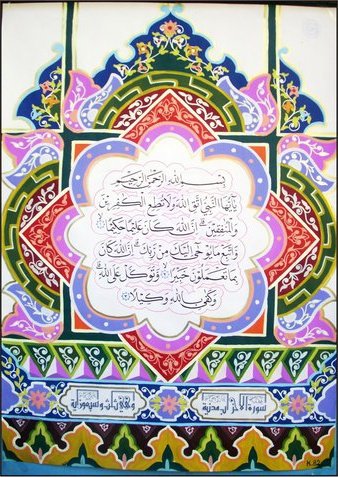 بِسْمِ اللهِ الرَّحْمٰنِ الرَّحِيْمِ
يٰٓاَيُّهَا النَّبِيُّ اتَّقِ اللهَ وَلَا تُطِعِ الْكٰفِرِيْنَ
وَالْمُنٰفِقِيْنَ ۗ اِنَّ اللهَ كَانَ عَلِيْمًا حَكِيْمًا ١
وَاتَّبِعْ مَا يُوْحٰى اِلَيْكَ مِنْ رَبِّكَ ۗ اِنَّ اللهَ كَانَ
بِمَا تَعْمَلُوْنَ خَبِيْرًا ٢ وَتَوَكَّلْ عَلَى اللهِ ۗ
وَكَفٰى بِاللهِ وَكِيْلًا ٣
سورة الاحزاب مدنية وهي ثلاث وسبعون اية